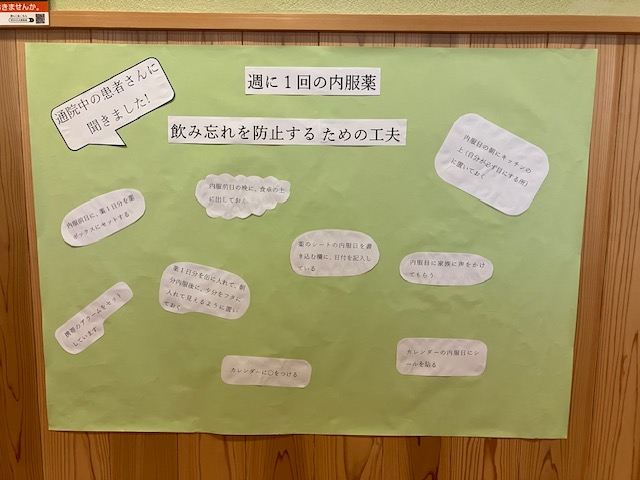 きませんか。
通院中の患者さんに
聞きました!
週に1回の内服薬
飲み忘れを防止する ための工夫
内服目の朝にキッチンの
上(自分が必ず目にする所)
に置いておく
内服前日の晩に、食卓の上
に出しておく
内服前日に、薬1日分を薬
ボックスにセットする
薬のシートの内服日を書
き込む欄に、日付を記入し
ている
内服日に家族に声をかけ
てもらう
薬1日分を缶に入れて、朝
分内服後に、夕分をフタに
入れて見えるように置い
ておく
携帯のアラームをセット
しています
カレンダーに〇をつける
カレンダーの内服日にシ
ールを貼る